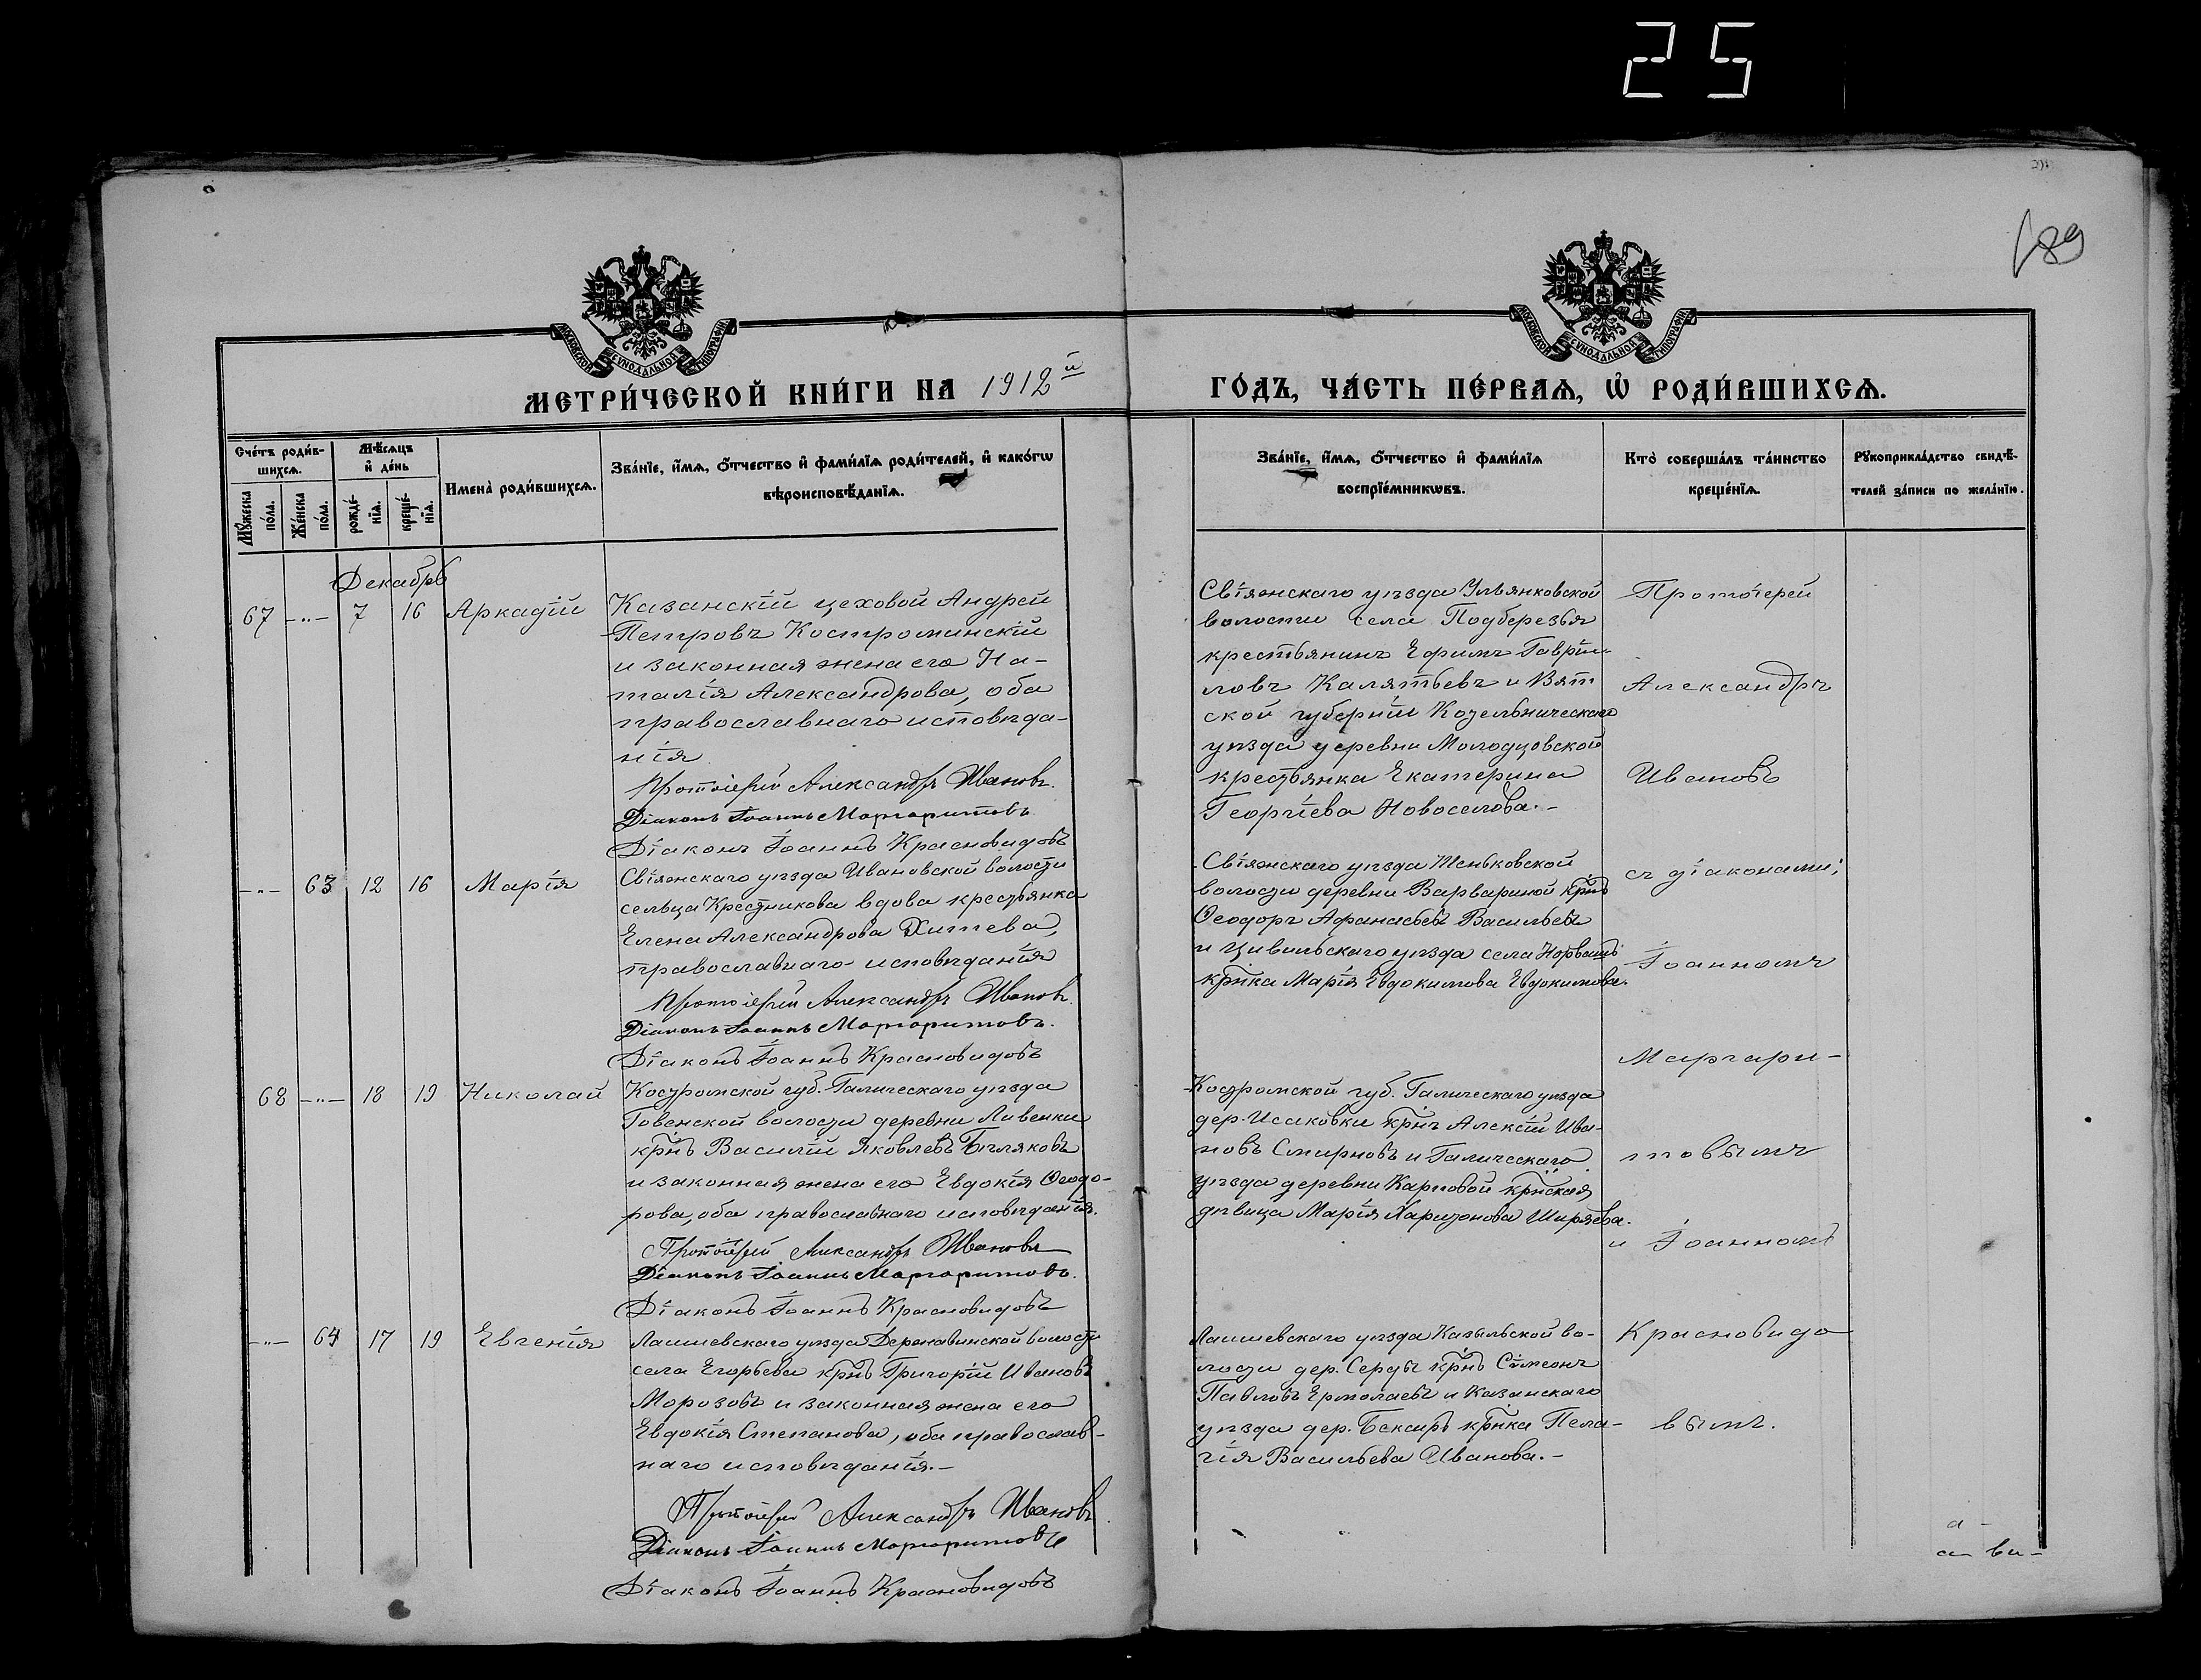 25
189
МОСКОВСКОЙ СУНОДАЛЬНОЙ ТИПОГРАФІИ
МОСКОВСКОЙ СУНОДАЛЬНОЙ ТИПОГРАФІИ
МЕТРИ́ЧЕСКОЙ КНИ́ГИ НА 1912й ГО́ДЪ, ЧА́СТЬ ПЕ́РВАѦ, Ѽ РОДИ́ВШИХСѦ.
Сче́тъ роди́в-
шихсѧ.
Мꙋ́жеска по́ла.
Же́нска по́ла.
Мѣ́сѧцъ
и҆ де́нь
рожде́-
нїѧ.
креще́-
нїѧ.
Имена̀ роди́вшихсѧ.
Зва́нїе, и҆́мѧ, ѻ҆́тчество и҆ фами́лїѧ роди́телей, и҆ како́гѡ
вѣроисповѣ́данїѧ.
Зва́нїе, и҆́мѧ, ѻ҆́тчество и҆ фами́лїѧ
воспрїе́мникѡвъ.
Кто̀ соверша́лъ та́инство
креще́нїѧ.
Рꙋкоприкла́дство свидѣ́-
телей за́писи по жела́нїю.
Декабрь
67 -"- 7 16 Аркадій
Казанскій цеховой Андрей
Петровъ Костроминскій
и законная жена его На-
талія Александрова, оба
православнаго исповѣда-
нія.
Протоіерей Александръ Ивановъ.
Діаконъ Іоаннъ Маргаритовъ
Діаконъ Іоаннъ Красновидовъ
Свіяжскаго уѣзда Ульянковской
волости села Подберезья
крестьянинъ Ефимъ Гаврі-
ловъ Калятьевъ и Вят
ской губерніи Котельническаго
уѣзда деревни Молодцовской
крестьянка Екатерина
Георгіева Новоселова.-
Протоіерей
Александръ
Ивановъ
съ діаконами:
Іоанномъ
Маргари-
товымъ
и Іоанномъ
Красновидо
вымъ.
-"- 63 12 16 Марія
Свіяжскаго уѣзда Ивановской волости
сельца Крестникова вдова крестьянка
Елена Александрова Хитева,
православнаго исповѣданія
Протоіерей Александръ Ивановъ.
Діаконъ Іоаннъ Маргаритовъ.
Діаконъ Іоаннъ Красновидовъ
Свіяжскаго уѣзда Шеньковской
волости деревни Варвариной крнъ
Ѳеодоръ Афанасьевъ Васильевъ
и Цивильскаго уѣзда села Норвашъ
крнка Марія Евдокимова Евдокимова.
68 -"- 18 19 Николай
Костромской губ. Галическаго уѣзда
Говенской волости деревни Ливенки
крнъ Василій Яковлевъ Бѣляковъ
и законная жена его Евдокія Ѳеодо-
рова, оба православнаго исповѣданія.
Протоіерей Александръ Ивановъ
Діаконъ Іоаннъ Маргаритовъ.
Діаконъ Іоаннъ Красновидовъ
Костромской губ. Галическаго уѣзда
дер. Исаковки крнъ Алексій Ива-
новъ Смирновъ и Галическаго
уѣзда деревни Карповой крнская
дѣвица Марія Харитонова Ширяева.
-"- 64 17 19 Евгенія
Лаишевскаго уѣзда Державинской волости
села Егорьева крнъ Григорій Ивановъ
Морозовъ и законная жена его
Евдокія Степанова, оба православ-
наго исповѣданія.-
Протоіерей Александръ Ивановъ
Діаконъ Іоаннъ Маргаритовъ
Діаконъ Іоаннъ Красновидовъ
Лаишевскаго уѣзда Казыльской во-
лости дер. Серды крнъ Сѵмеонъ
Павловъ Ермолаевъ и Казанскаго
уѣзда дер. Бексиръ крнка Пела-
гія Васильева Иванова.-